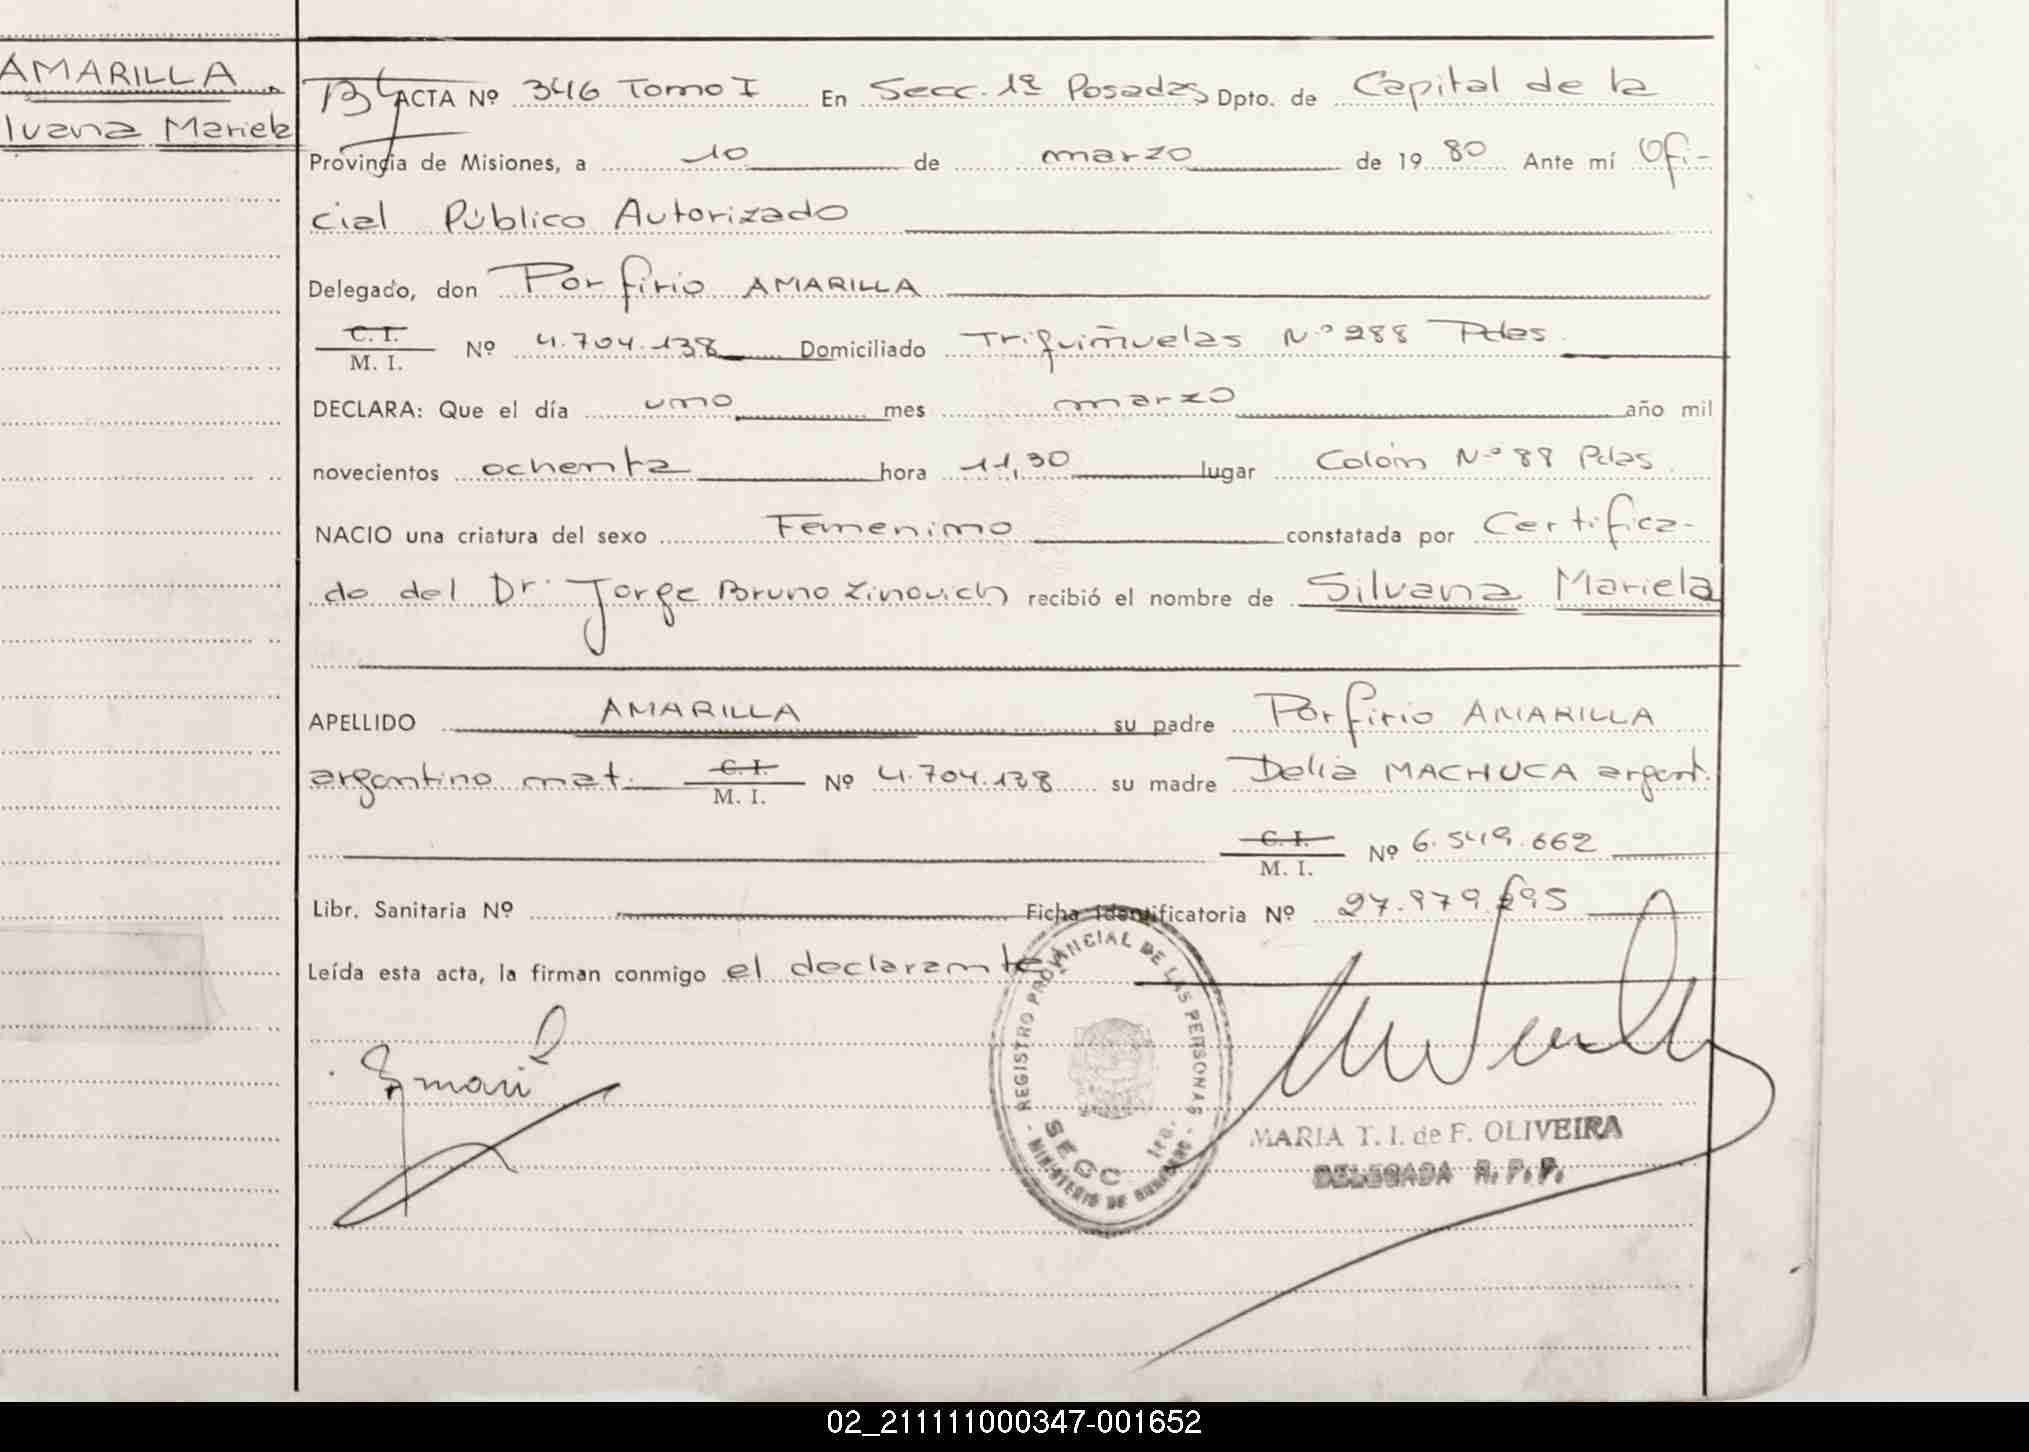 AMARILLA
lvana Mariela
ACTA Nº 346 Tomo I En Secc. 1ª Posadas Dpto. de Capital de la
Provincia de Misiones, a 10 de marzo de 1980 Ante mí Ofi-
cial Público Autorizado
Delegado, don Porfirio AMARILLA
C. I.
M. I. Nº 4.704.138 Domiciliado Triquiñuelas Nº 288 Pdas.
DECLARA: Que el día uno mes marzo año mil
novecientos ochenta hora 11,30 lugar Colón Nº 88 Pdas.
NACIO una criatura del sexo Femenino constatada por Certifica-
do del Dr. Jorge Bruno Zinovich recibió el nombre de Silvana Mariela
APELLIDO AMARILLA su padre Porfirio AMARILLA
argentino mat. C. I.
M. I. Nº 4.704.138 su madre Delia MACHUCA argent.
C. I.
M. I. Nº 6.549.662
Libr. Sanitaria Nº Ficha Identificatoria Nº
Leída esta acta, la firman conmigo el declarante
REGISTRO PROVINCIAL DE LAS PERSONAS
SECC 1ra.
MINISTERIO DE GOBIERNO
MARIA T. I. de F. OLIVEIRA
DELEGADA R. P. P.
02_211111000347-001652